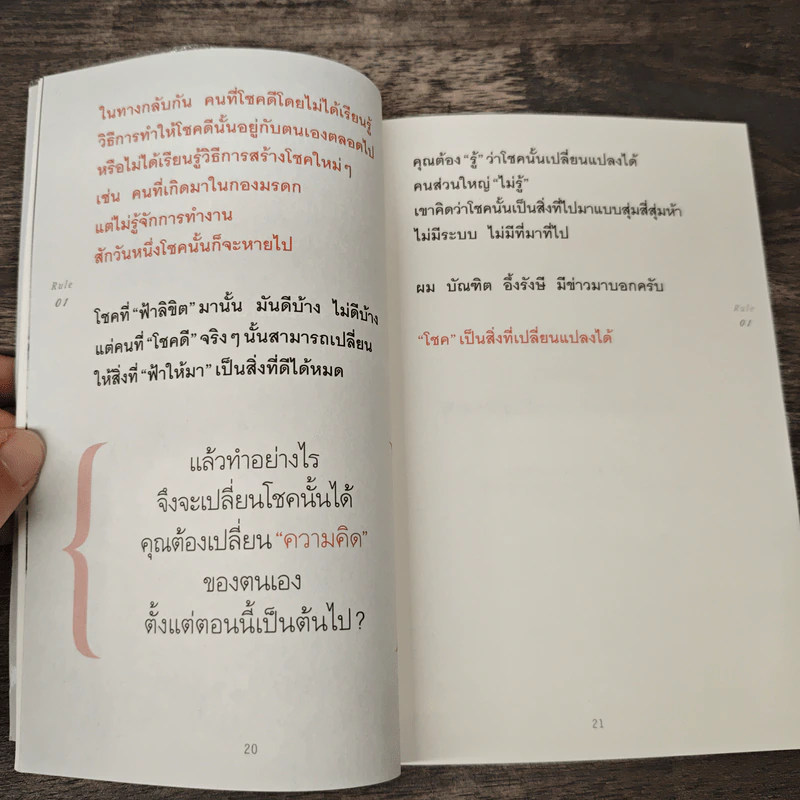 ในทางกลับกัน คนที่โชคดีโดยไม่ได้เรียนรู้
วิธีการทำให้โชคดีนั้นอยู่กับตนเองตลอดไป
หรือไม่ได้เรียนรู้วิธีการสร้างโชคใหม่ๆ
เช่น คนที่เกิดมาในกองมรดก
แต่ไม่รู้จักการทำงาน
สักวันหนึ่งโชคนั้นก็จะหายไป
Rule
01
โชคที่ “ฟ้าลิขิต” มานั้น มันดีบ้าง ไม่ดีบ้าง
แต่คนที่ “โชคดี” จริงๆ นั้นสามารถเปลี่ยน
ให้สิ่งที่ “ฟ้าให้มา” เป็นสิ่งที่ดีได้หมด
แล้วทำอย่างไร
จึงจะเปลี่ยนโชคนั้นได้
คุณต้องเปลี่ยน “ความคิด”
ของตนเอง
ตั้งแต่ตอนนี้เป็นต้นไป?
20
คุณต้อง “รู้” ว่าโชคนั้นเปลี่ยนแปลงได้
คนส่วนใหญ่ “ไม่รู้”
เขาคิดว่าโชคนั้นเป็นสิ่งที่ไปมาแบบสุ่มสี่สุ่มห้า
ไม่มีระบบ ไม่มีที่มาที่ไป
ผม บัณฑิต อึ้งรังษี มีข่าวมาบอกครับ
Rule
01
“โชค” เป็นสิ่งที่เปลี่ยนแปลงได้
21